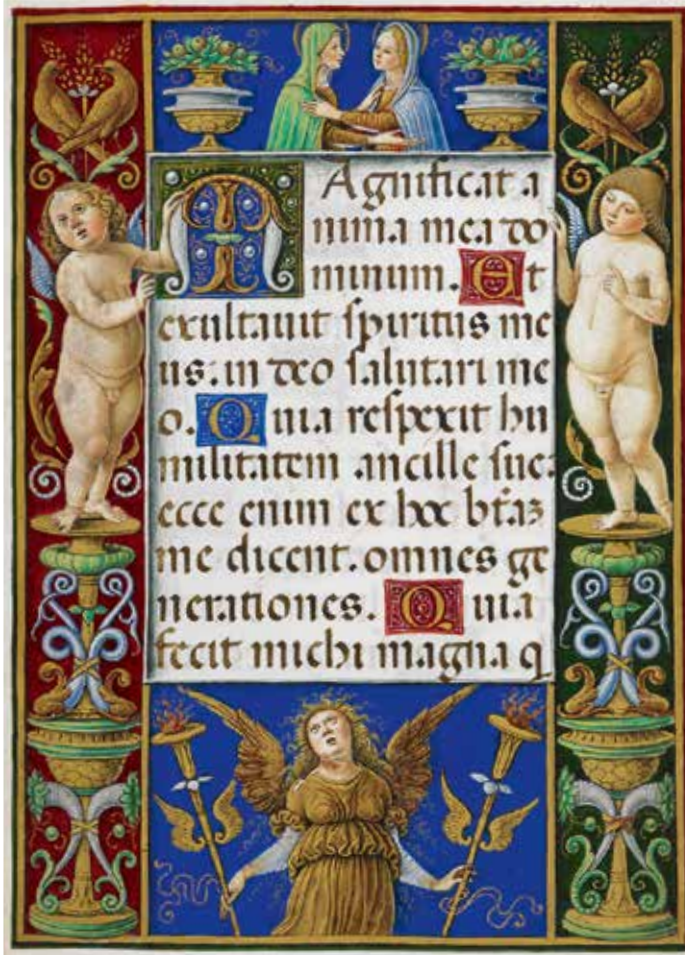 MAgnificat a
nima mea do
minum. Et
exultauit spiritus me
us: in deo salutari me
o. Quia respexit hu
militatem ancille sue:
ecce enim ex hoc btãz
me dicent. omnes ge
nerationes. Quia
fecit michi magna q